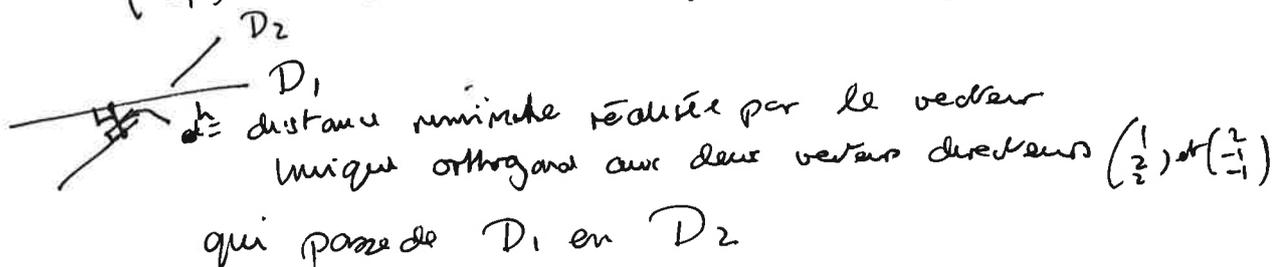 D2
D1
h = distance minimale réalisée par le vecteur
unique orthogonal aux deux vecteurs directeurs (1 2 2) et (2 -1 -1)
qui passe de D1 en D2